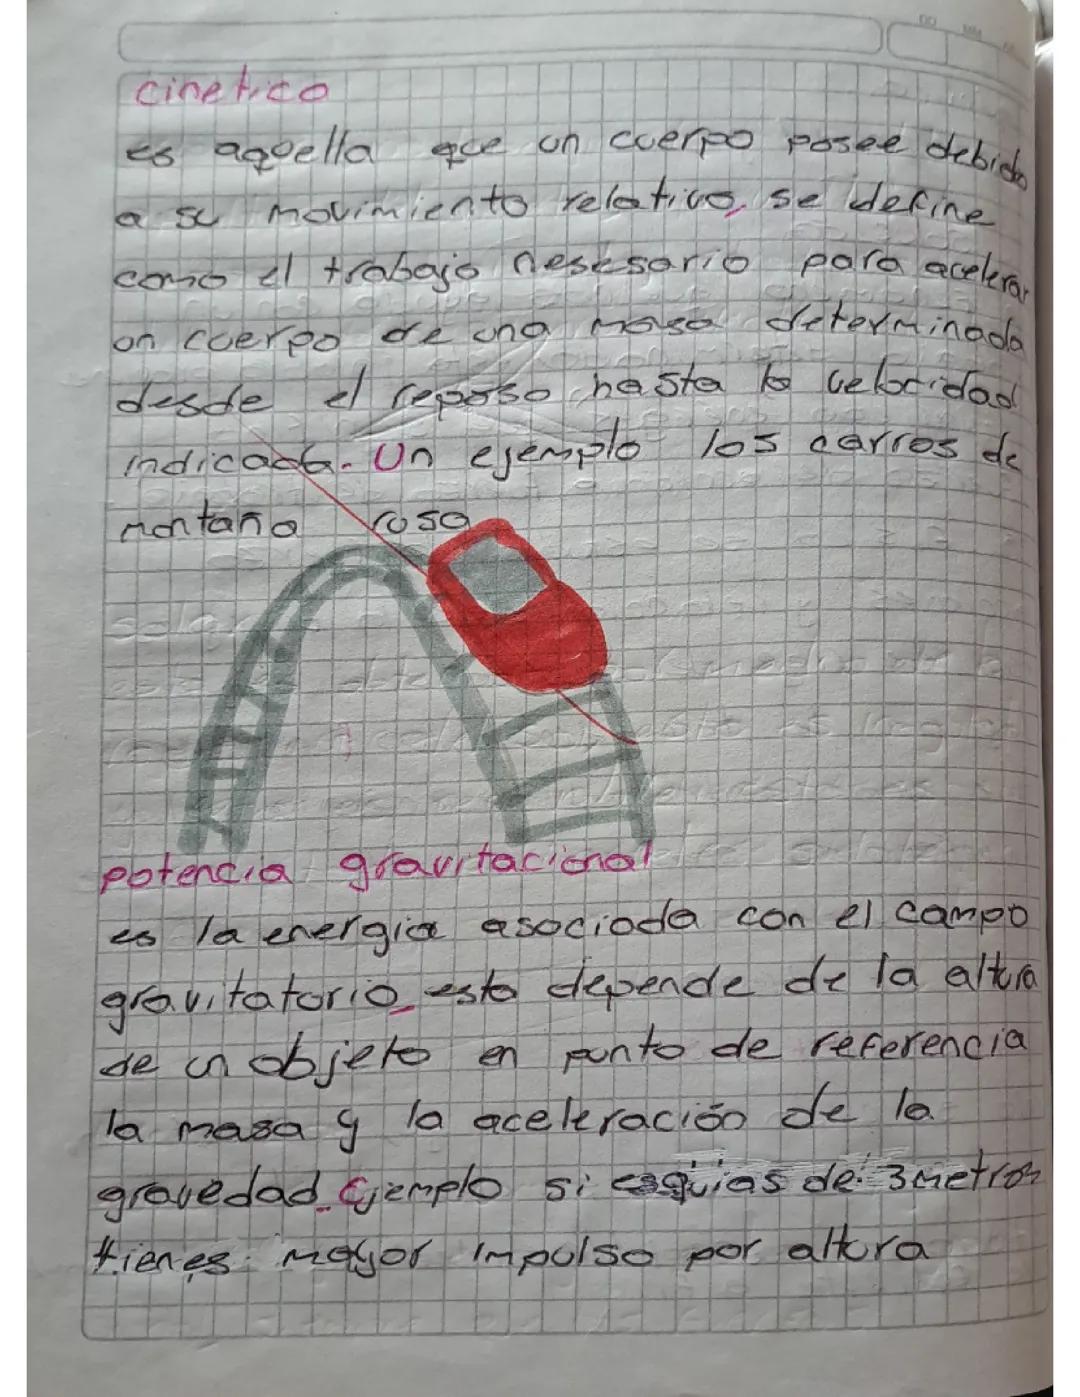 cinetico
es aquella que un cuerpo posee debido
a su movimiento relativo, se define
como el trabajo nesesario para acelerar
un cuerpo de una masa determinada
desde el reposo hasta la velocidad
indicada. Un ejemplo los carros de
montaña rusa
potencia gravitacional
es la energia asociada con el campo
gravitatorio, esto depende de la altura
de un objeto en punto de referencia
la masa y la aceleración de la
gravedad. Ejemplo si esquias de 3 metros
tienes mayor impulso por altura